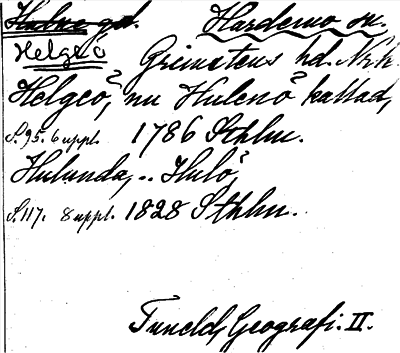 Hulne gd. Hardemo sn.
Helgeö Grimstens hd. Nrk.
Helgeö, nu Hulenö kallad,
S. 95. 6 uppl. 1786 Sthlm.
Hulunda, .. Hulö,
S. 117. 8 uppl. 1828 Sthlm.
Tuneld, Geografi. II.